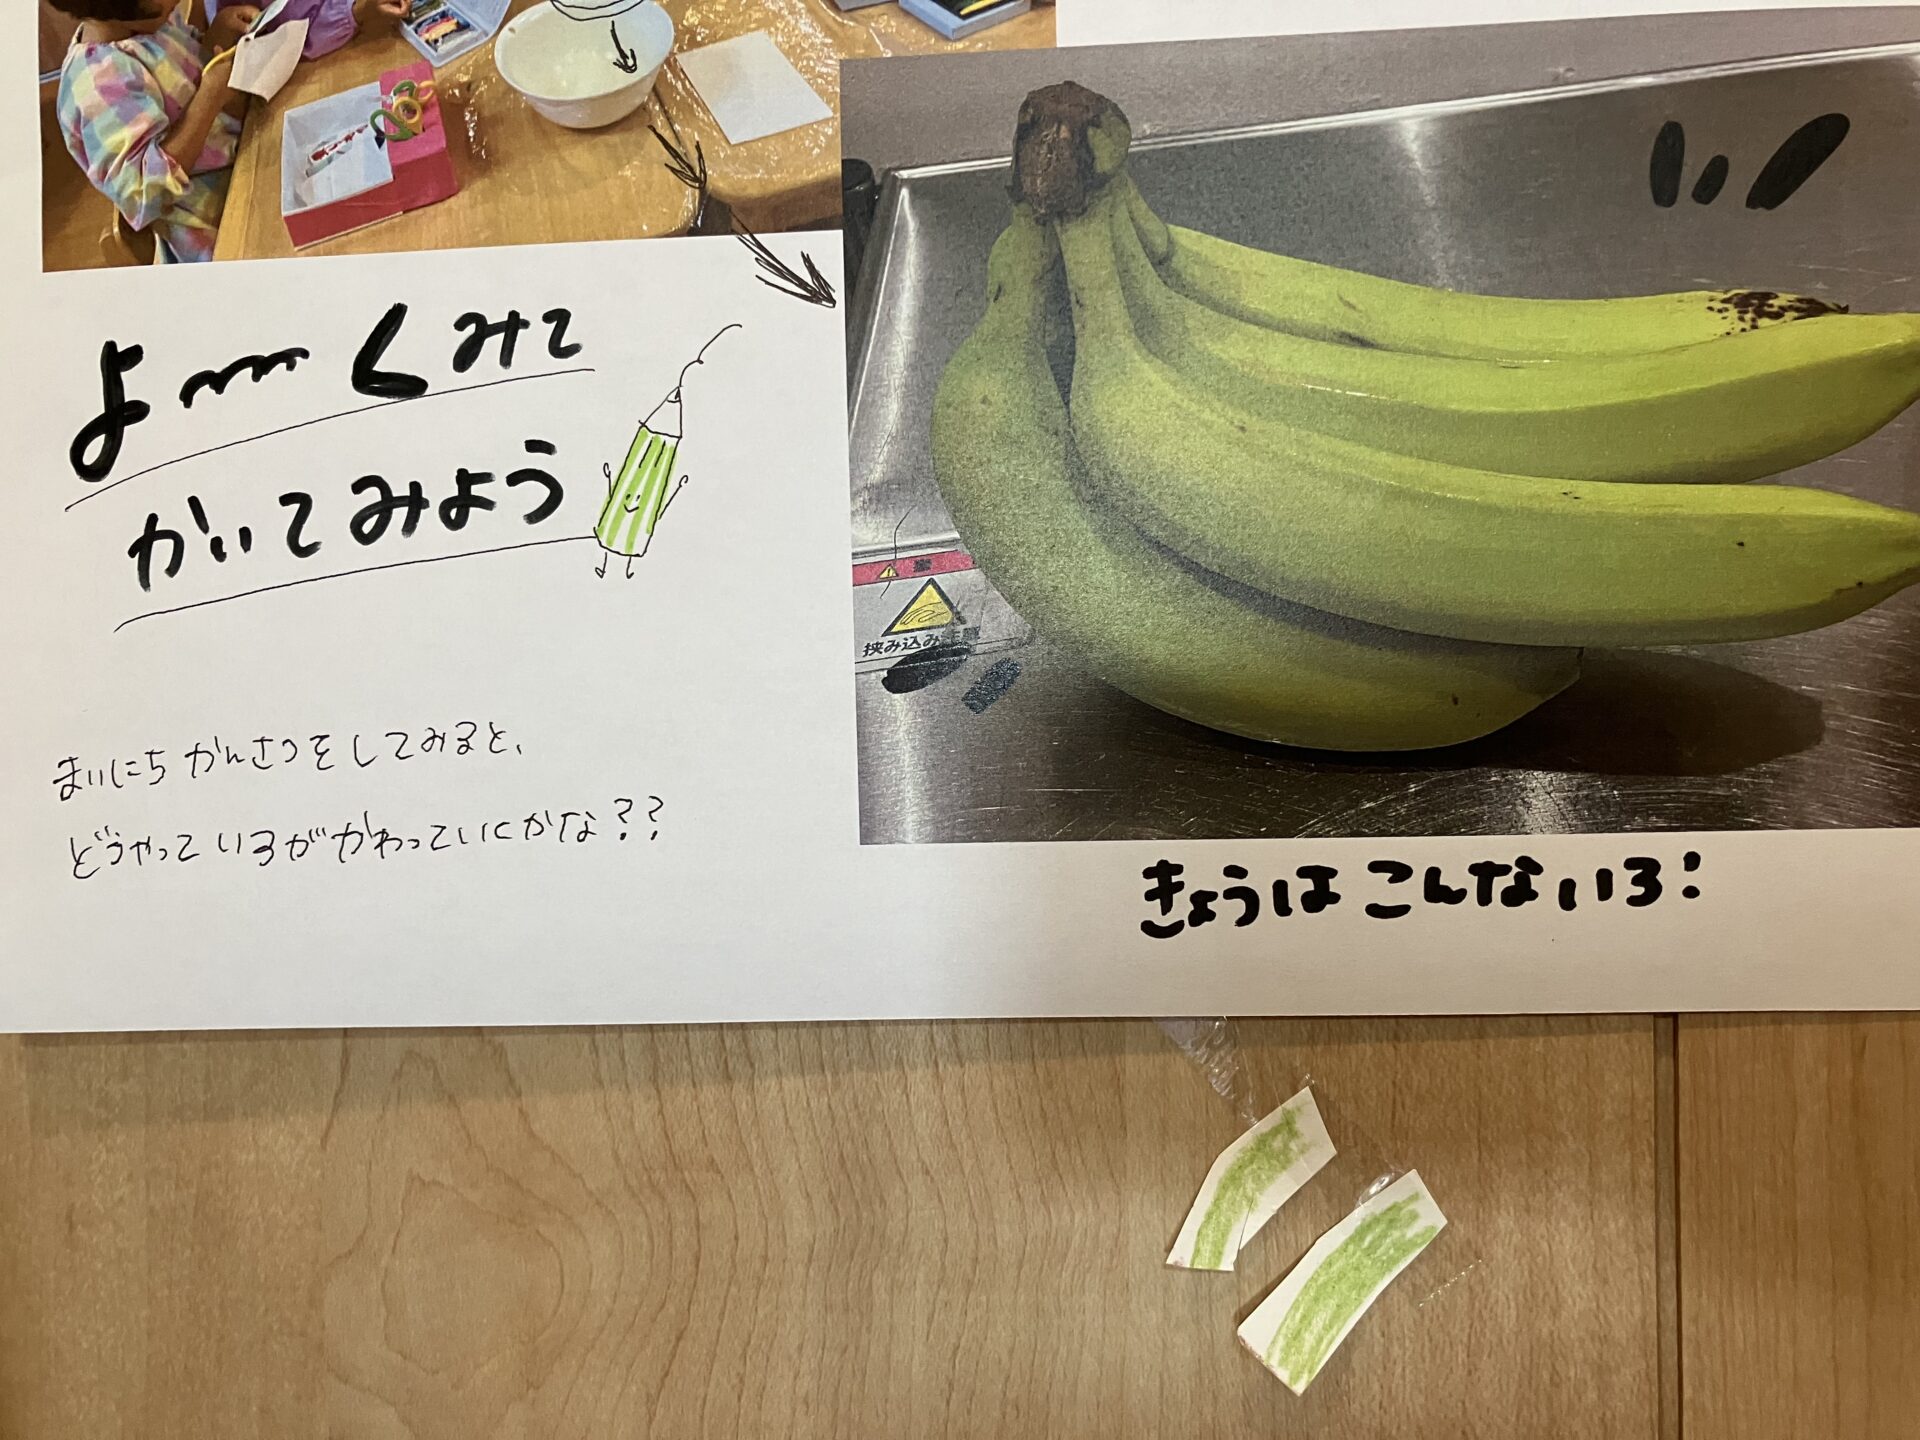 よーくみて
かいてみよう
まいにち かんさつをしてみると、
どうやって いろが かわっていくかな??
挟み込み注意
きょうは こんないろ!